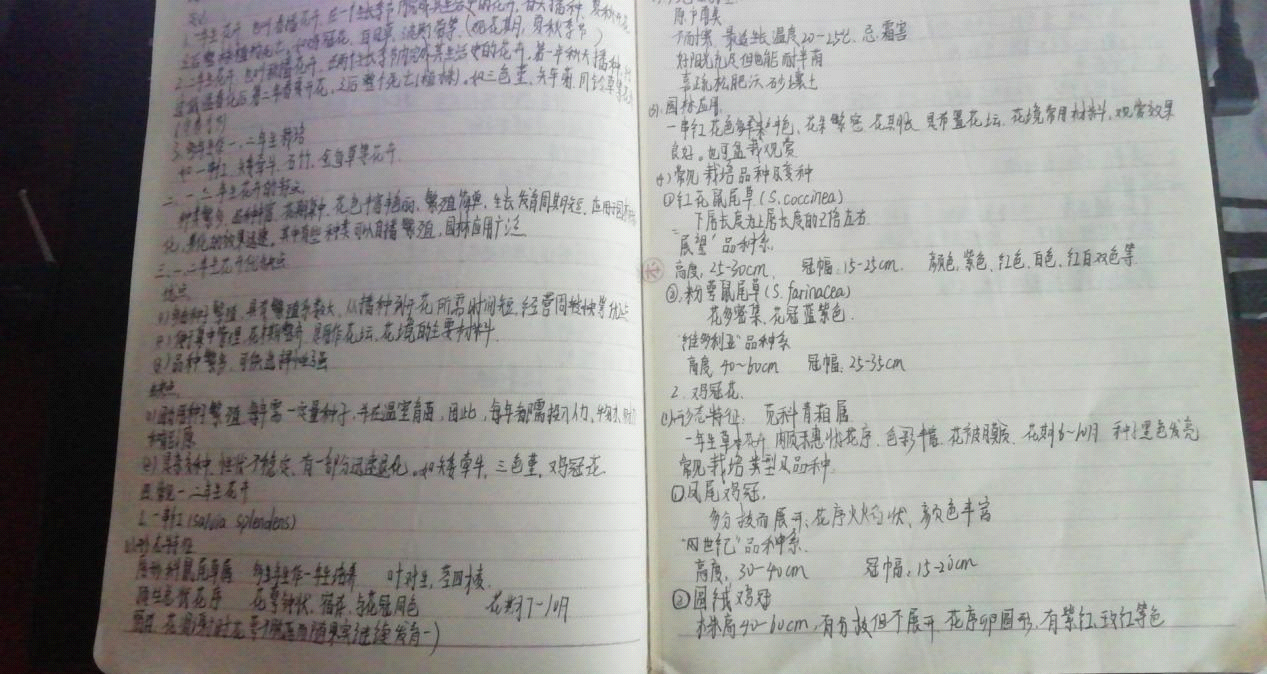 1. 一年生花卉 也叫春播花卉 在一个生长季节内完成其生活史的花卉,春天播种,夏秋开花
之后整株植物死亡,如鸡冠花、百日草、波斯菊等(观花期,夏秋季节)
2. 二年生花卉 也叫秋播花卉 在两个生长季节内完成其生活史的花卉,第一年秋天播种
过低温春化后第二年春季开花,之后整个死亡(植株)。如三色堇、矢车菊、
3. 多年生作一、二年生栽培
如一串红、矮牵牛、石竹、金鱼草等花卉
二、一、二年生花卉的特点
种类繁多、品种丰富、花期集中、花色丰富艳丽、繁殖简单、生长发育周期短、应用于园林
化、美化的效果迅速。其中有些种类可以自播繁殖,园林应用广泛
三、一、二年生花卉优缺点
优点
(1)多为种子繁殖,具有繁殖系数大、从播种到开花所需时间短,经营周转快等优点
(2)便于集中管理,花期整齐,是用作花坛、花境的主要材料
(3)品种繁多,可供选择性强
缺点
(1)因为用种子繁殖,每年需一定量种子,并在温室育苗,因此,每年都需投入人力、物力、财力
(2)是杂交种,性状不稳定,有一部分迅速退化。如矮牵牛、三色堇、鸡冠花
四、常见一、二年生花卉
1. 一串红(salvia splendens)
(1)形态特征
唇形科鼠尾草属 多年生作一年生培养 叶对生,茎四棱
顶生总状花序 花萼钟状、宿存、与花冠同色 花期7-10月
原产南美
不耐寒、最适生长温度20-25℃、忌霜害
好阳光充足但也能耐半荫
喜疏松肥沃砂壤土
(3)园林应用
一串红花色多鲜艳、花朵繁密、花期长 是布置花坛、花境常用材料,观赏效果
良好。也可盆栽观赏
(4)常见栽培品种及变种
①红花鼠尾草(S.coccinea)
下唇长度为上唇长度的2倍左右
"展望"品种系
高度,25-30cm, 冠幅:15-25cm, 颜色,紫色、红色、白色、红白双色等
②.粉萼鼠尾草(S.farinacea)
花多密集、花冠蓝紫色.
"维多利亚"品种系
高度,40~60cm 冠幅:25-35cm
2.鸡冠花.
(1)形态特征: 苋科青葙属
一年生草本花卉 肉质穗状花序、色彩丰富、花被膜质、花期6~10月 种子黑色发亮
常见栽培类型及品种.
①凤尾鸡冠.
多分枝而展开、花序火焰状、颜色丰富
"世纪"品种系.
高度,30-40cm 冠幅:15-20cm
②圆绒鸡冠
株高40-60cm,有分枝但不展开,花序卵圆形,有紫红、玫红等色